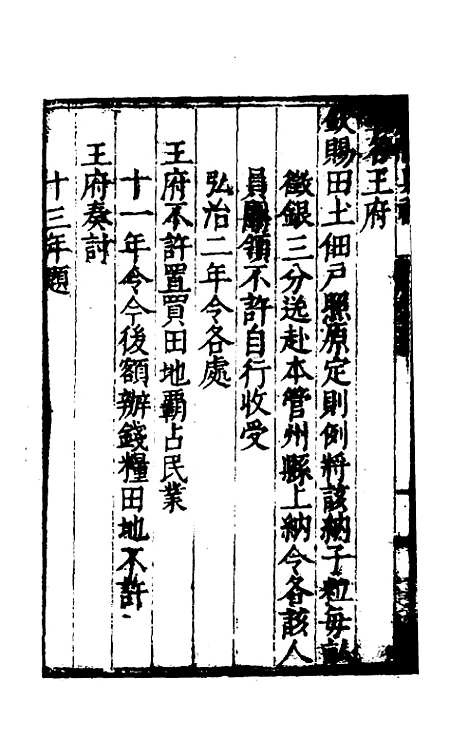 各王府
欽賜田土佃戶照原定則例將該納子粒每畝
徵銀三分送赴本管州縣上納令各該人
員關領不許自行收受
弘治二年令各處
王府不許置買田地霸占民業
十一年令今後額辦錢糧田地不許
王府奏討
十三年題